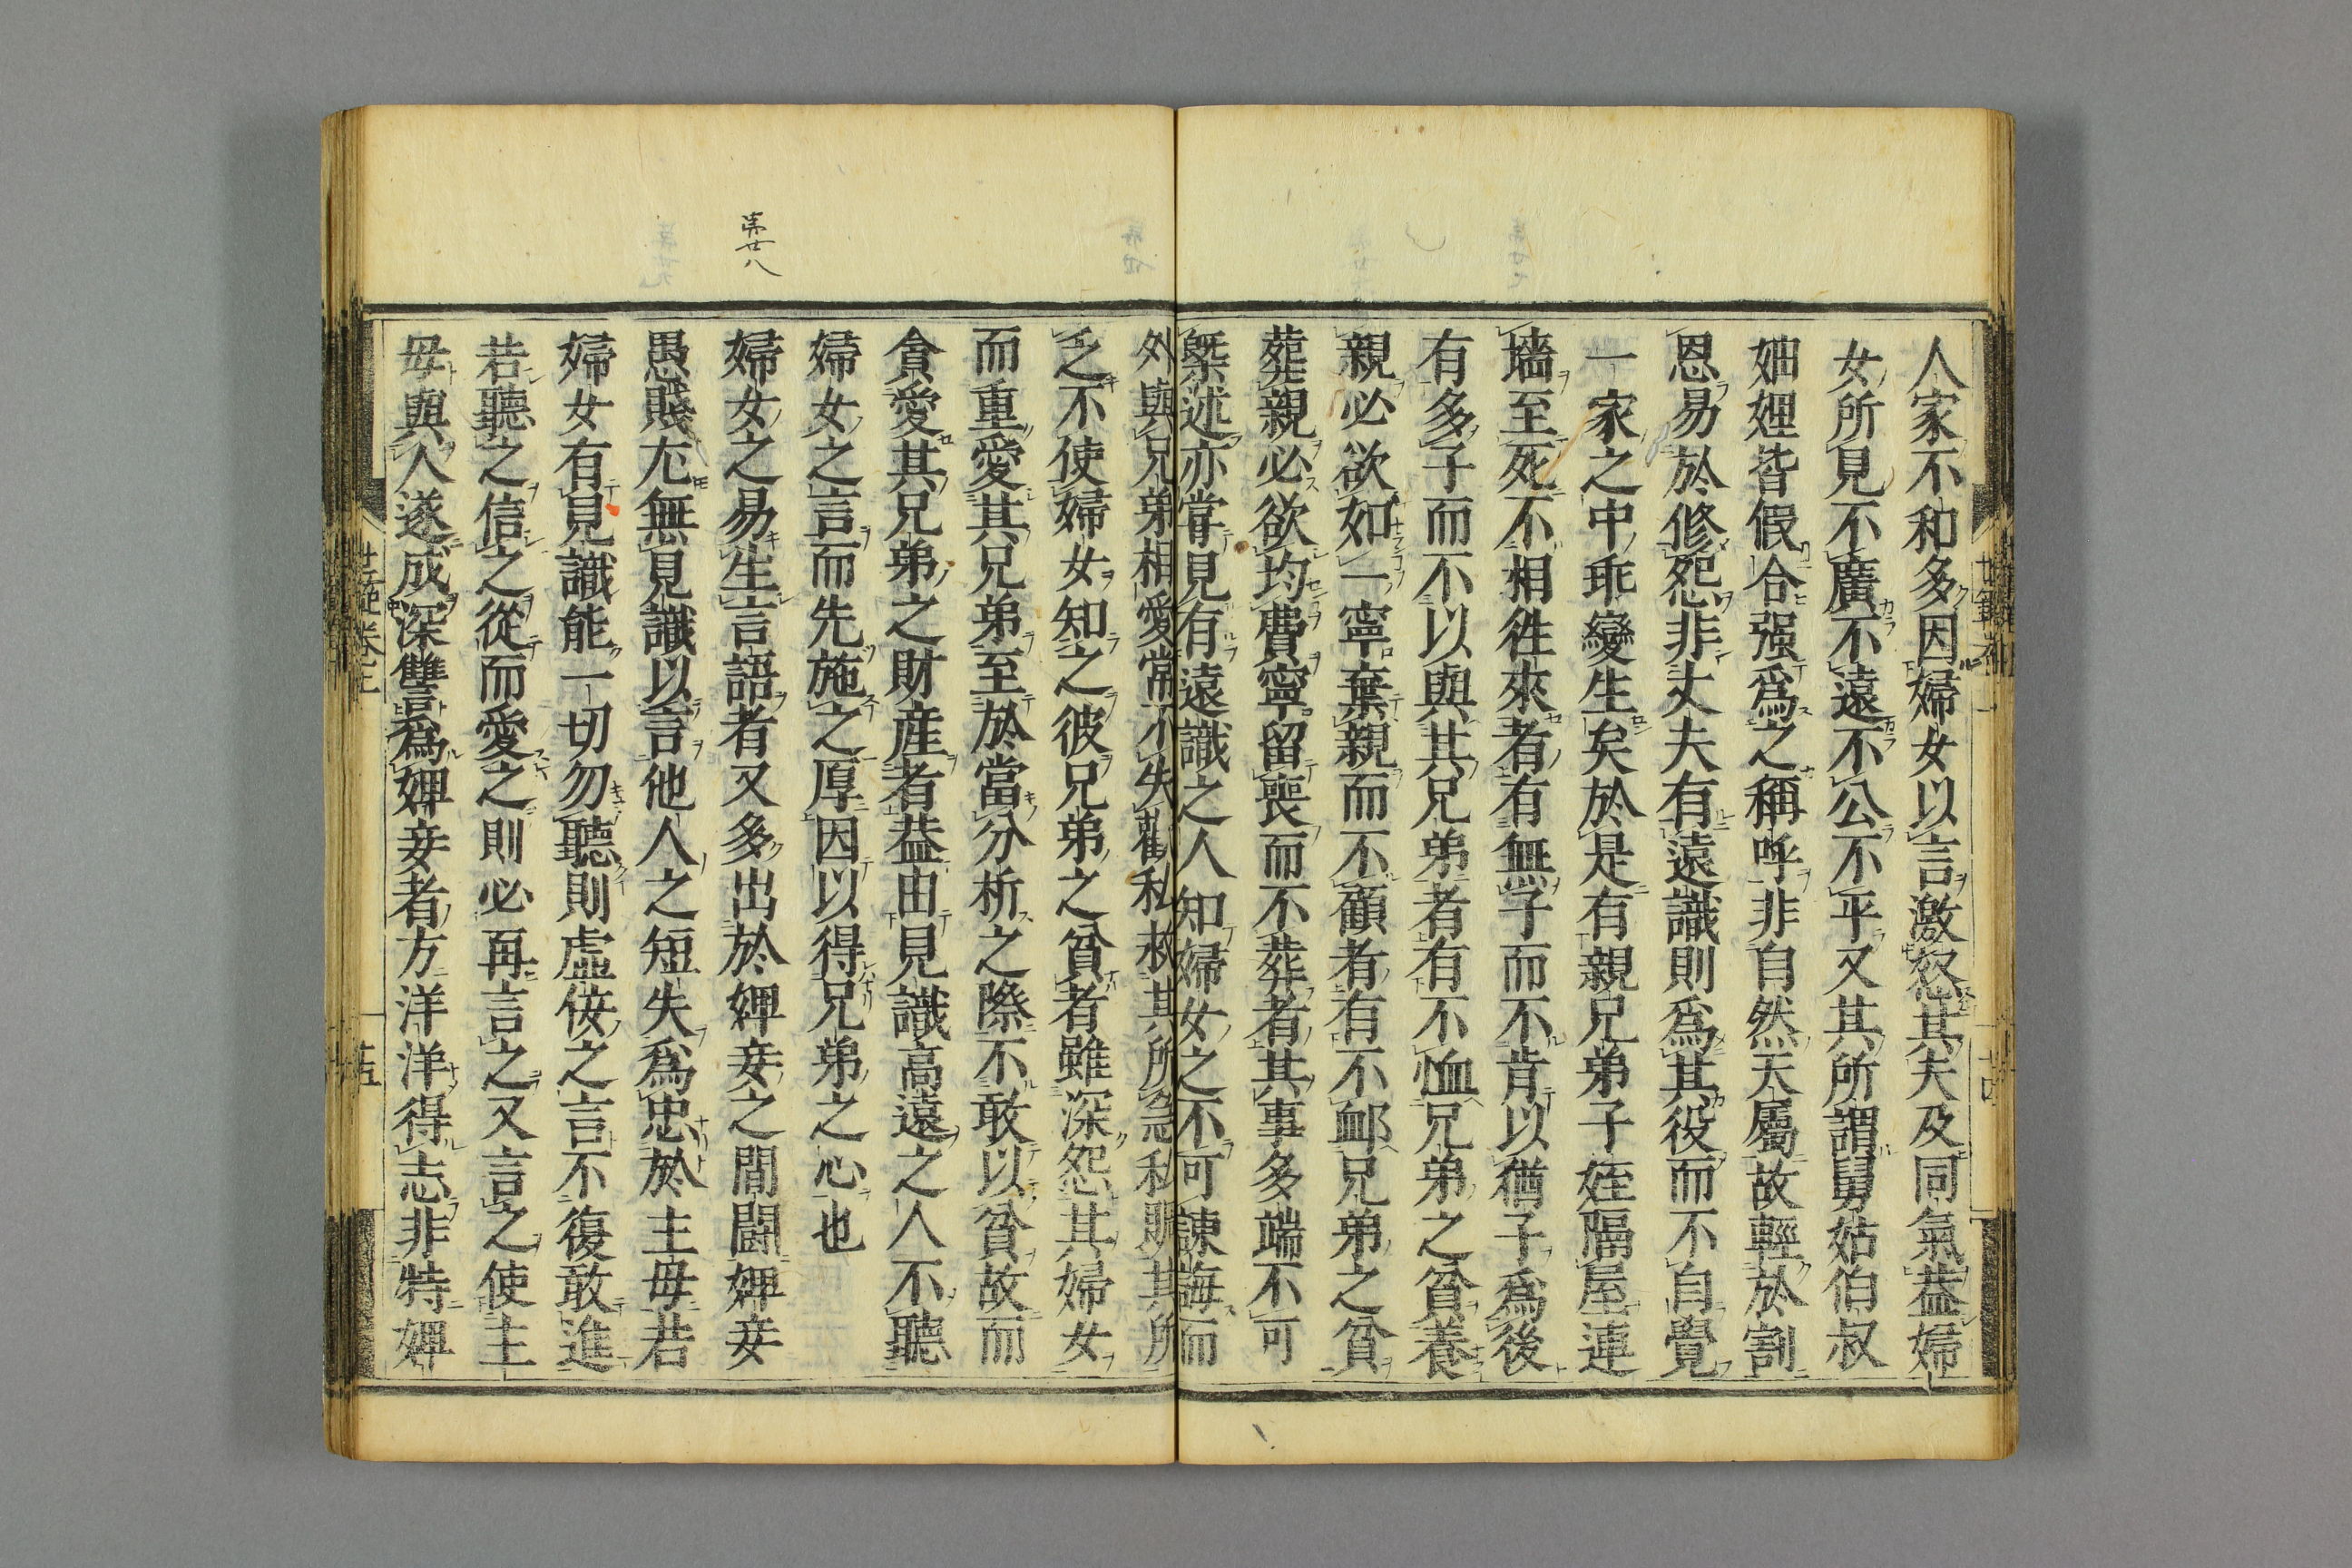 人家不和多因婦女以言激怒其夫及同氣葢婦
女所見不廣不遠不公不平又其所謂舅姑伯叔
妯娌皆假合强爲之稱呼非自然天屬故輕於割
恩易於修怨非丈夫有遠識則爲其役而不自覺
一家之中乖變生矣於是有親兄弟子姪隔屋連
墻至死不相徃來者有無子而不肯以猶子爲後
有多子而不以與其兄弟者有不恤兄弟之貧養
親必欲如一寧棄親而不顧者有不䘏兄弟之貧
葬親必欲均費寧留喪而不葬者其事多端不可
槩述亦甞見有遠識之人知婦女之不可諫誨而
外與兄弟相愛常不失歡私救其所急私賙其所
乏不使婦女知之彼兄弟之貧者雖深怨其婦女
而重愛其兄弟至於當分析之際不敢以貧故而
貪愛其兄弟之財産者葢由見識高遠之人不聽
婦女之言而先施之厚因以得兄弟之心也
第廿八
婦女之易生言語者又多出於婢妾之間鬭婢妾
愚賤尤無見識以言他人之短失爲忠於主母若
婦女有見識能一切勿聽則虛佞之言不復敢進
若聽之信之從而愛之則必再言之又言之使主
毋與人遂成深讐爲婢妾者方洋洋得志非特婢